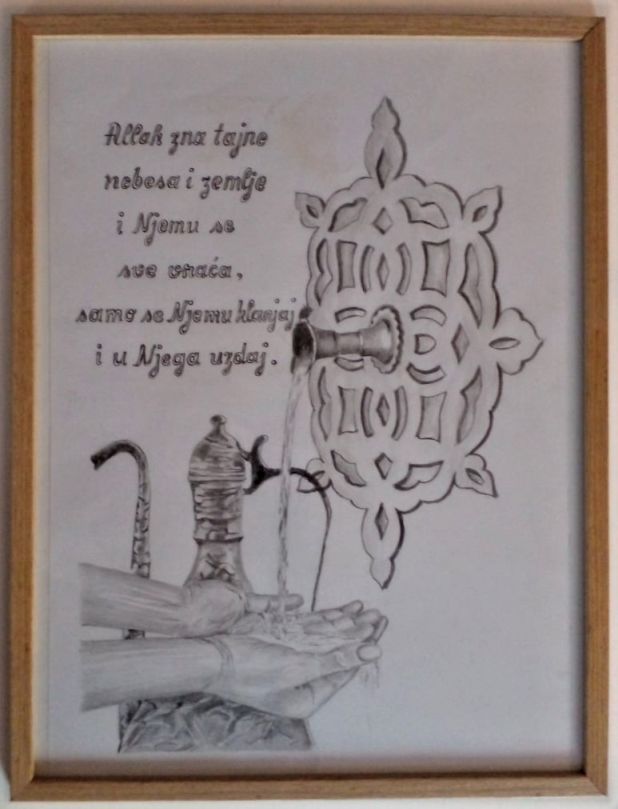 Allah zna tajne
nebesa i zemlje
i Njemu se
sve vraća,
samo se Njemu klanjaj
i u Njega uzdaj.